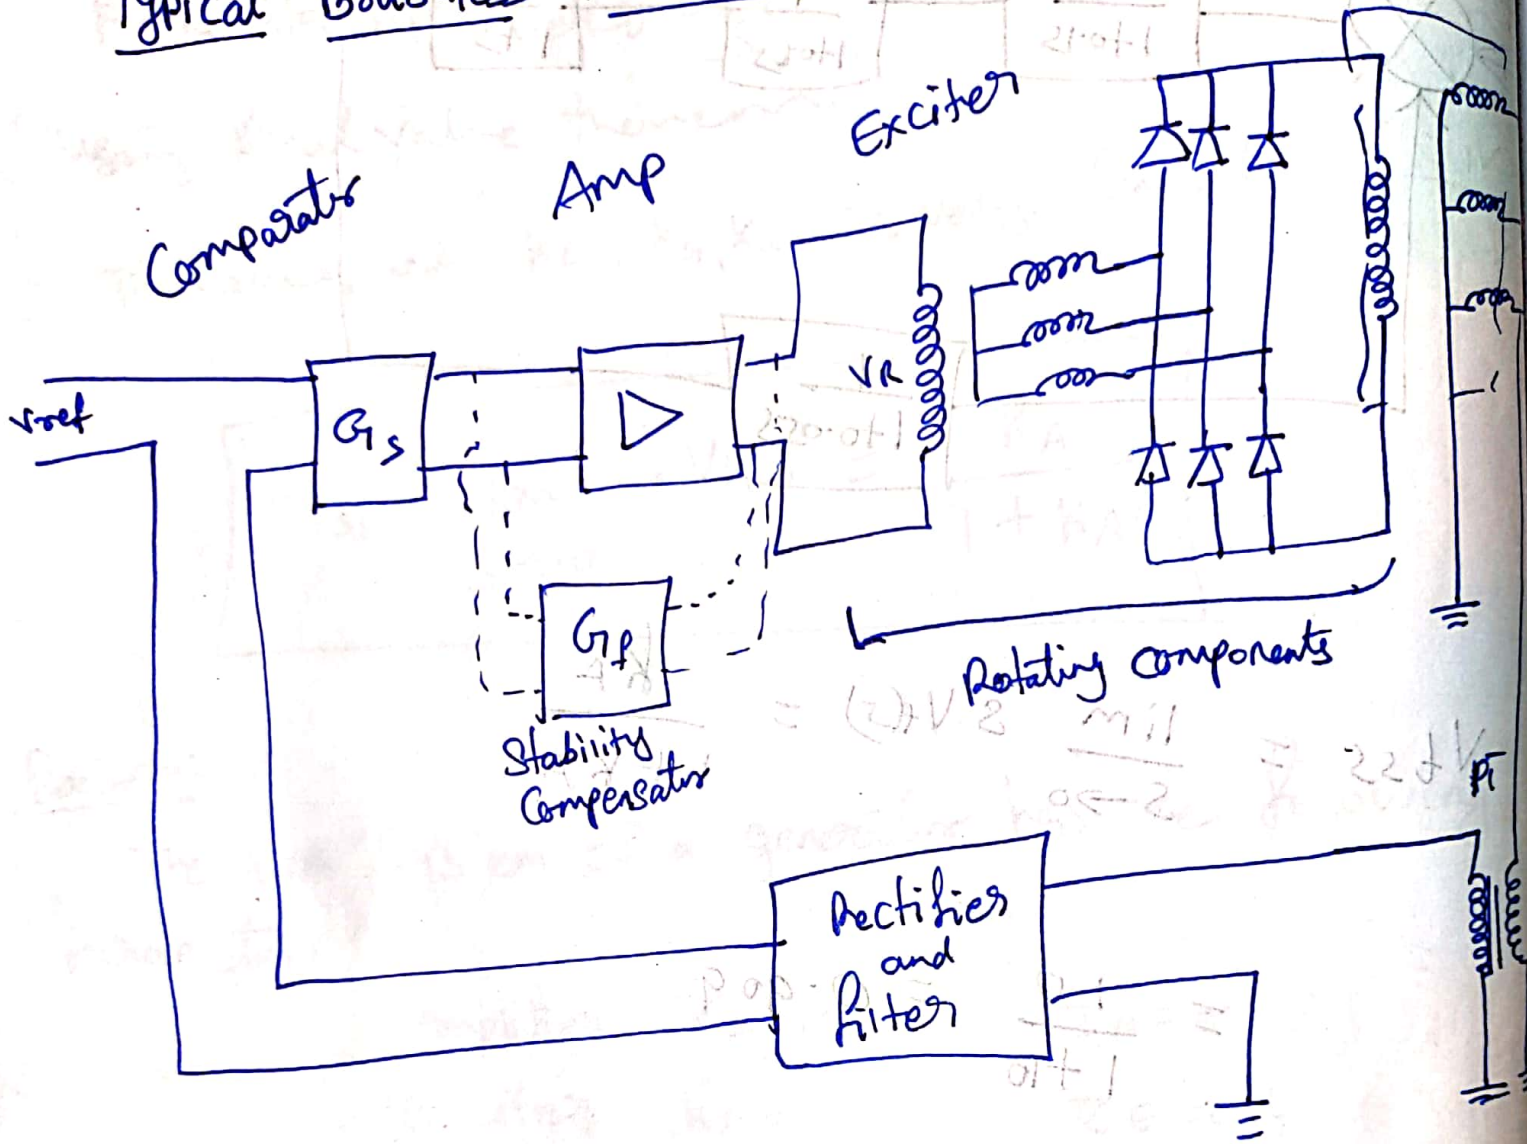 Typical
Comparator
Amp
Exciter
Vref
Gs
VR
Gf
Stability
Compensator
Rotating components
PT
Rectifier
and
filter